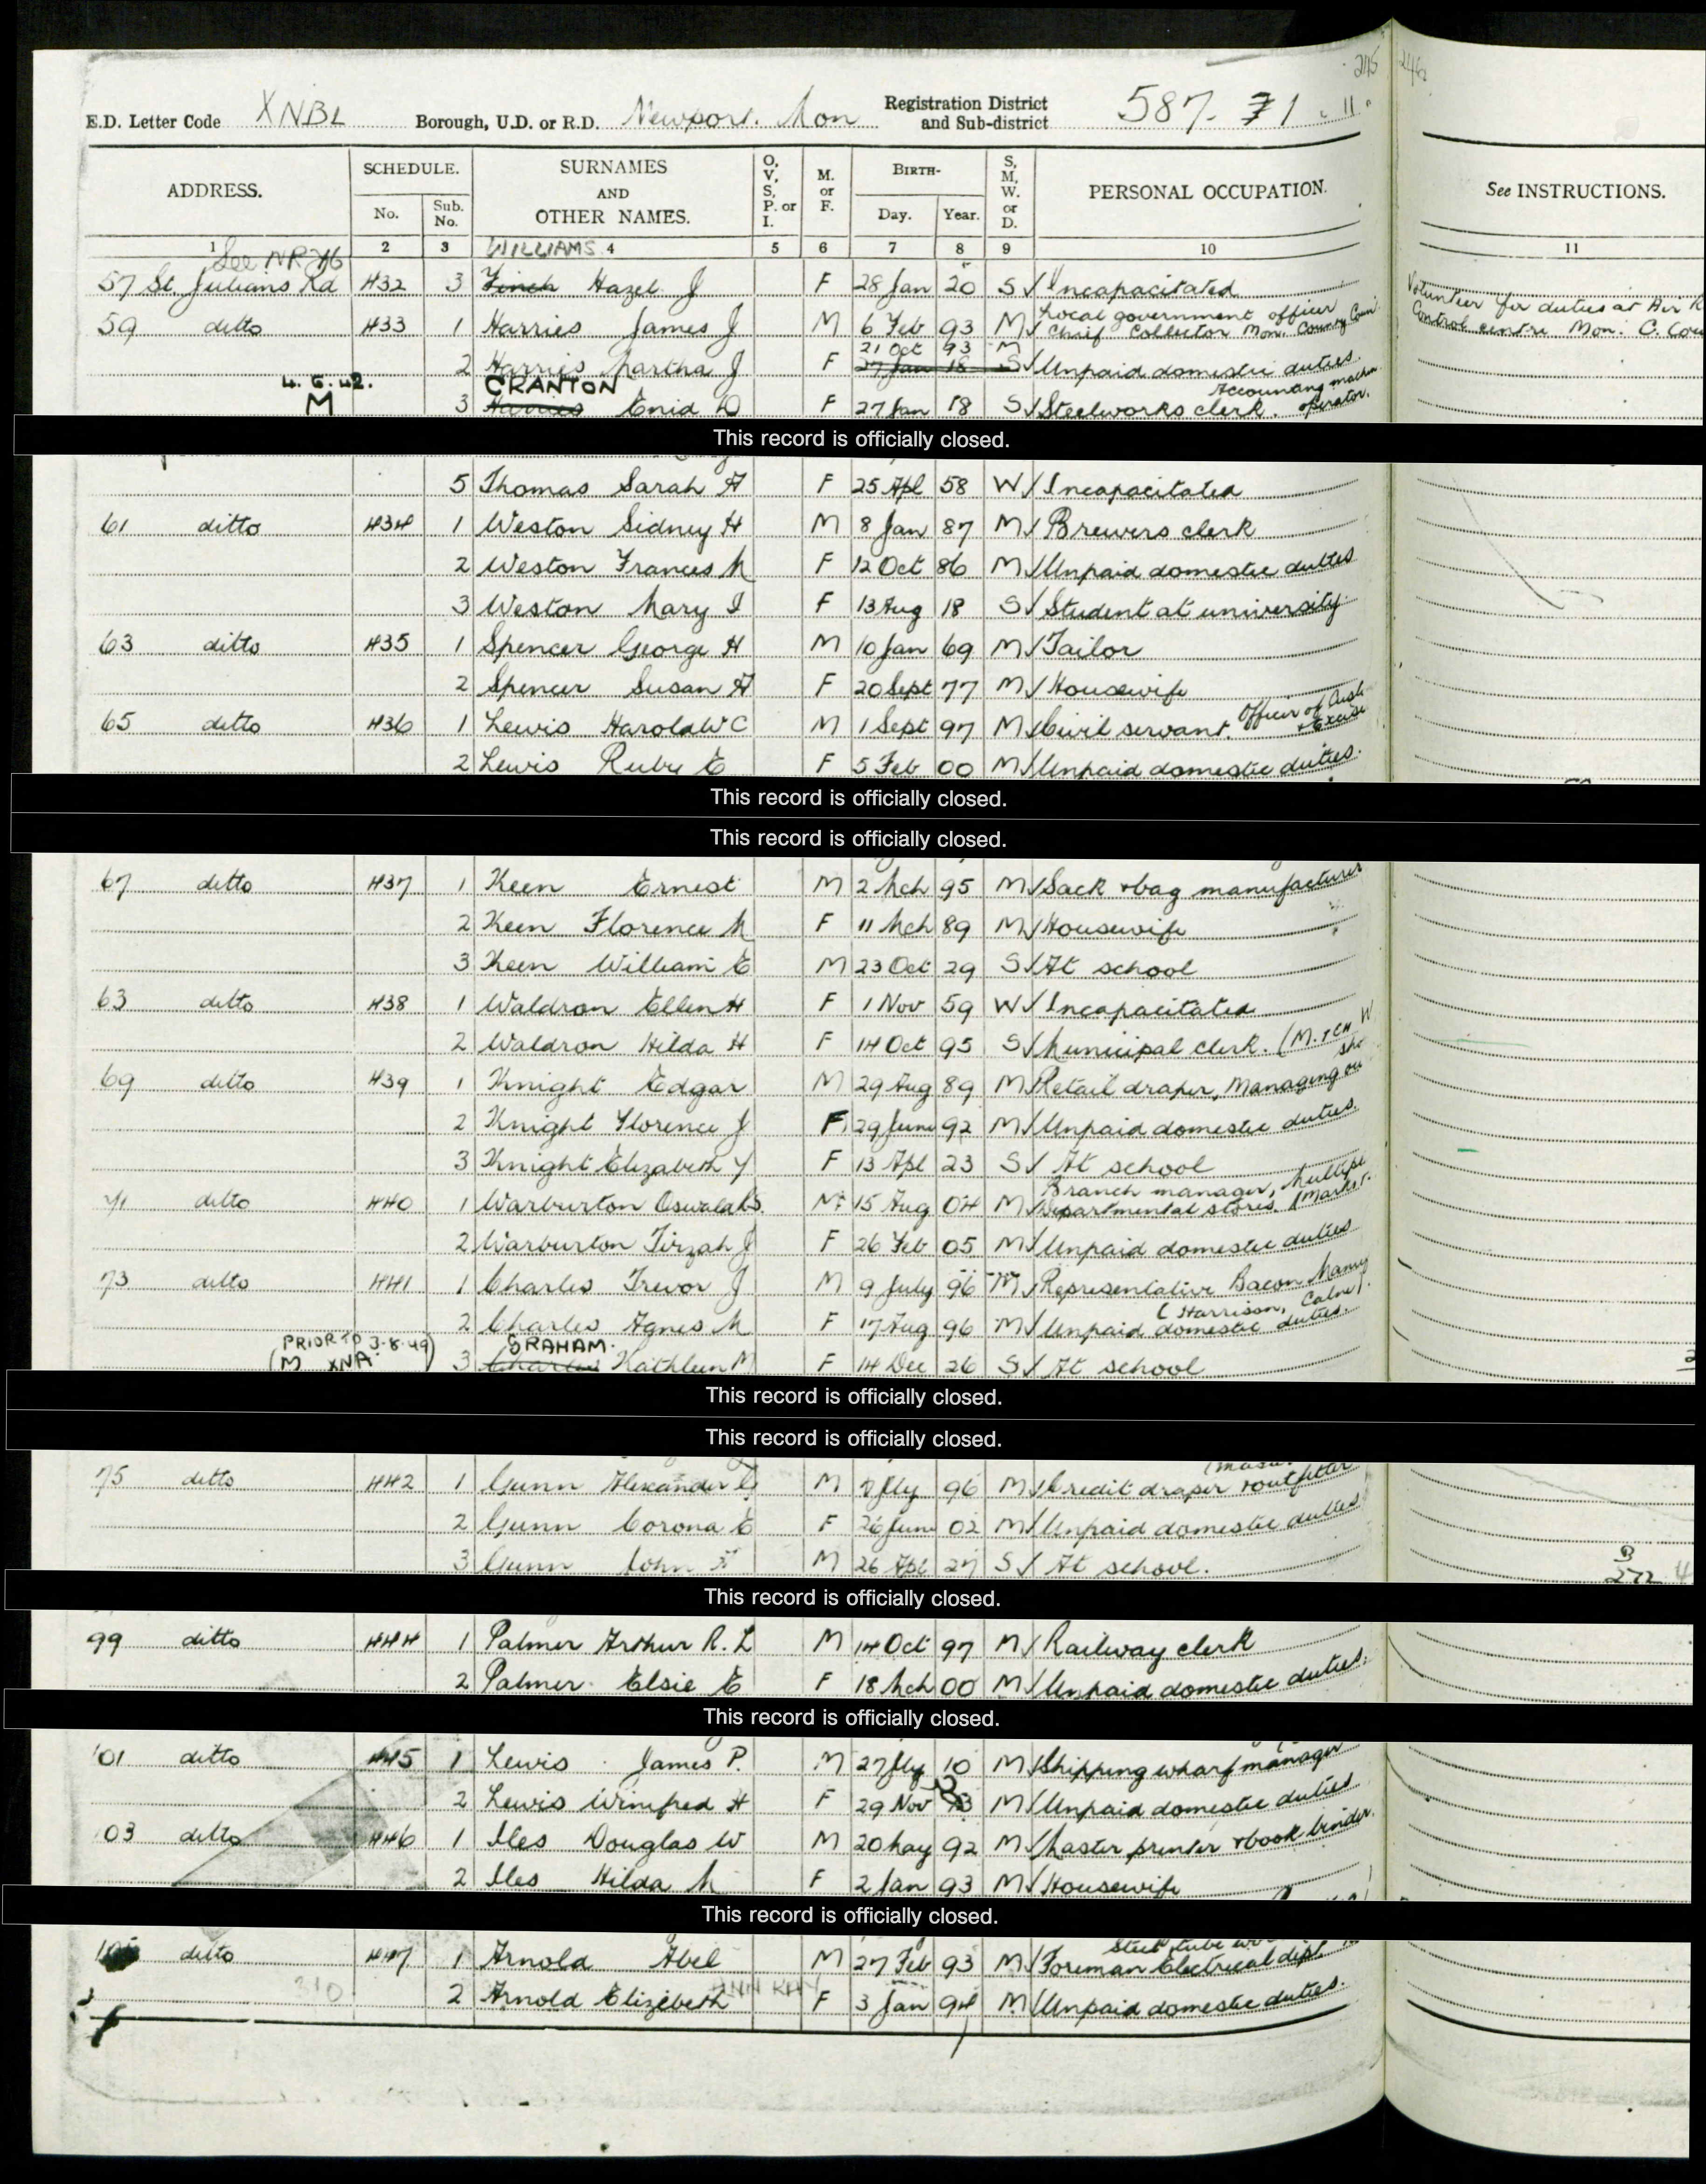 245 246
E.D. Letter Code XNBL Borough, U.D. or R.D. Newport. Mon Registration District and Sub-district 587- 71 . 11
ADDRESS. SCHEDULE. No. Sub. No. SURNAMES AND OTHER NAMES. O, V, S, P. or I. M. or F. BIRTH- Day. Year. S, M, W. or D. PERSONAL OCCUPATION. See INSTRUCTIONS.
1 2 3 4 5 6 7 8 9 10 11
See NR 216 WILLIAMS
57 St. Julians Rd 432 3 Finch Hazel J F 28 Jan 20 S Incapacitated
59 ditto 433 1 Harries James J M 6 Feb 93 M Local government officer Chief Collector Mon. County Coun Volunteer for duties at Air R Control centre Mon. C. Cou
21 Oct 93 M
2 Harries Martha J F 27 Jan 18 S Unpaid domestic duties.
4.6.42. M CRANTON
3 Harries Enid D F 27 Jan 18 S Steelworks clerk. Accounting machine operator.
This record is officially closed.
5 Thomas Sarah A F 25 Apl 58 W Incapacitated
61 ditto 434 1 Weston Sidney H M 8 Jan 87 M Brewers clerk
2 Weston Frances M F 12 Oct 86 M Unpaid domestic duties
3 Weston Mary I F 13 Aug 18 S Student at university
63 ditto 435 1 Spencer George H M 10 Jan 69 M Tailor
2 Spencer Susan A F 20 Sept 77 M Housewife
65 ditto 436 1 Lewis Harold W C M 1 Sept 97 M Civil servant. Officer of Cust + Excise
2 Lewis Ruby E F 5 Feb 00 M Unpaid domestic duties.
This record is officially closed.
This record is officially closed.
67 ditto 437 1 Keen Ernest M 2 Mch 95 M Sack + bag manufacturer
2 Keen Florence M F 11 Mch 89 M Housewife
3 Keen William E M 23 Oct 29 S At school
63 ditto 438 1 Waldron Ellen H F 1 Nov 59 W Incapacitated
2 Waldron Hilda H F 14 Oct 95 S Municipal clerk. (M. + CH W.
69 ditto 439 1 Knight Edgar M 29 Aug 89 M Retail draper, Managing
2 Knight Florence J F 29 June 92 M Unpaid domestic duties.
3 Knight Elizabeth Y F 13 Apl 23 S At school
71 ditto 440 1 Warburton Oswald S M 15 Aug 04 M Branch manager, Multiple Departmental stores. (Marks
2 Warburton Tirzah J F 26 Feb 05 M Unpaid domestic duties
73 ditto 441 1 Charles Trevor J M 9 July 96 M Representative Bacon Manuf (Harrison, Calne).
2 Charles Agnes M F 17 Aug 96 M Unpaid domestic duties.
(PRIOR TO 3.8.49) (M XNA GRAHAM.
3 Charles Kathleen M F 14 Dec 26 S At school
This record is officially closed.
This record is officially closed.
75 ditto 442 1 Gunn Alexander G M 7 Jly 96 M Credit draper + outfitter
2 Gunn Corona E F 26 June 02 M Unpaid domestic duties
3 Gunn John M 26 Apl 27 S At school. 3 272
This record is officially closed.
99 ditto 444 1 Palmer Arthur R. L M 14 Oct 97 M Railway clerk
2 Palmer Elsie E F 18 Mch 00 M Unpaid domestic duties.
This record is officially closed.
101 ditto 445 1 Lewis James P. M 27 Jly 10 M Shipping wharf manager
2 Lewis Winifred H F 29 Nov M Unpaid domestic duties
103 ditto 446 1 Iles Douglas W M 20 May 92 M Master printer + book binder.
2 Iles Hilda M F 2 Jan 93 M Housewife
This record is officially closed.
ditto 447 1 Arnold Abel M 27 Feb 93 M Steel tube Foreman Electrical dept.
310 2 Arnold Elizebeth F 3 Jan 94 M Unpaid domestic duties.